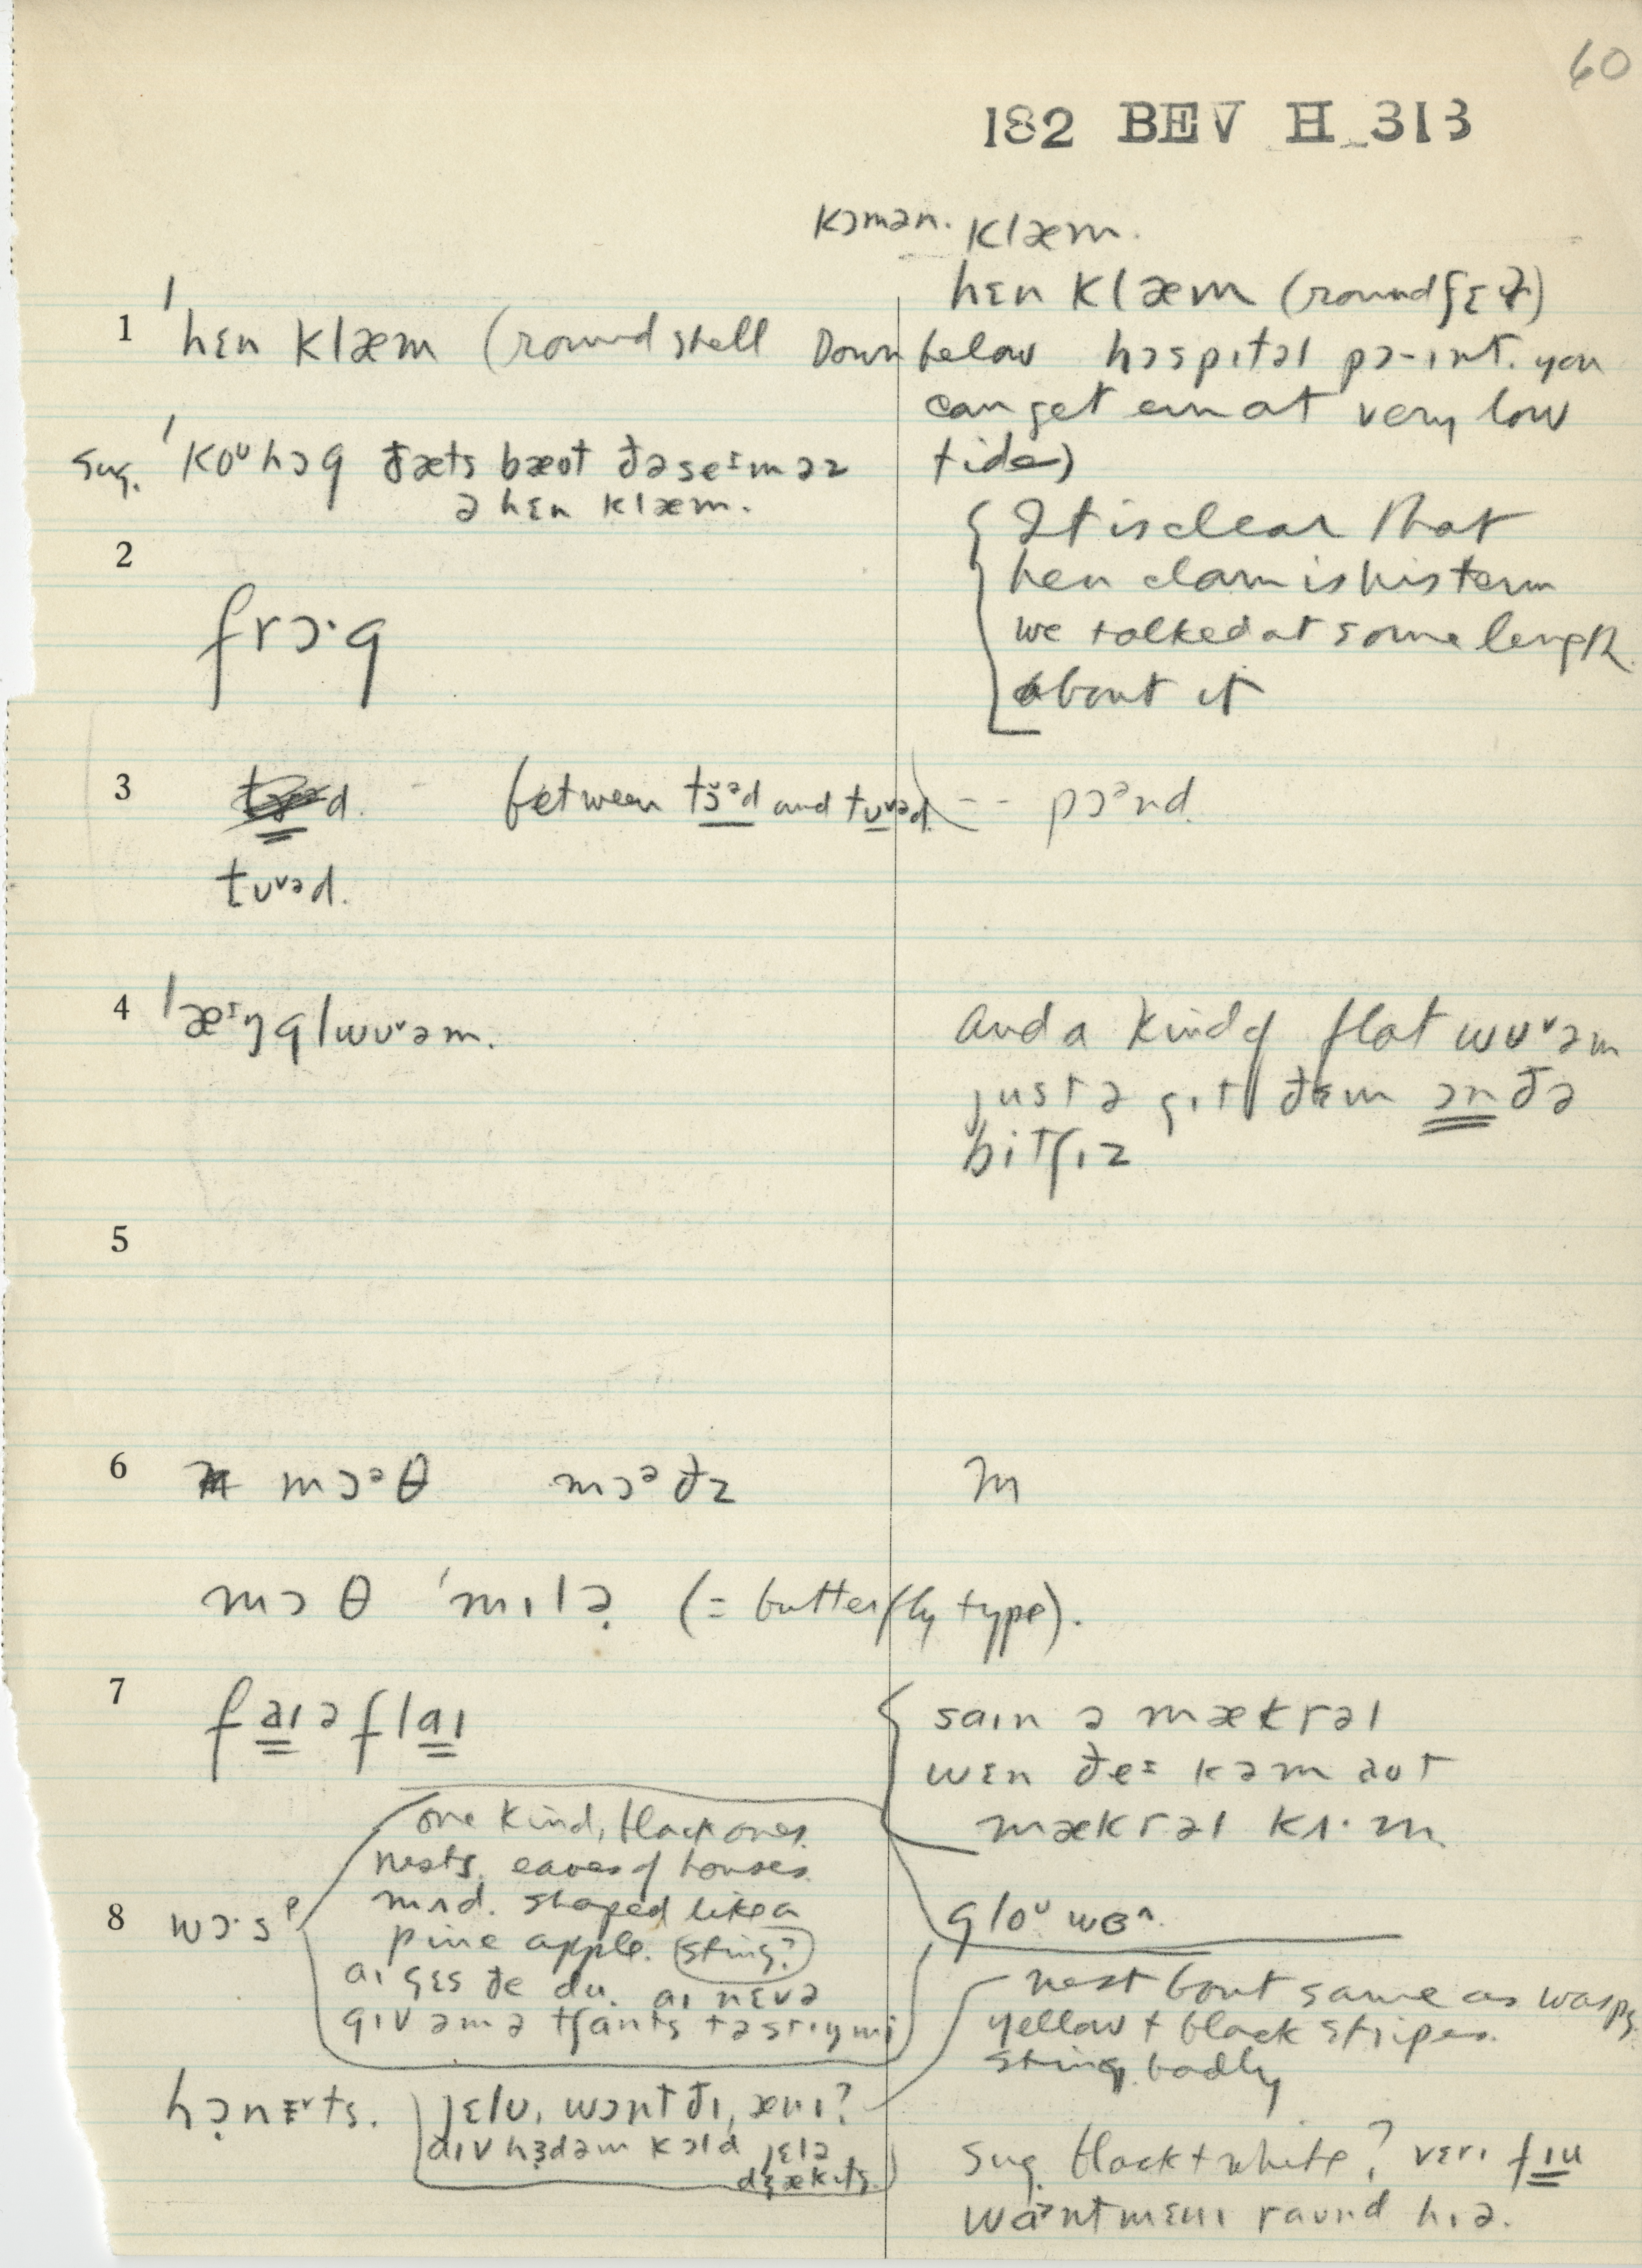 60
182 BEV II 313
kɔmən. klæm.
hɛn klæm (round ʃɛɫ)
1 ˈhɛn klæm (round shell Down below hɔspɪtəl pɔ-ɪnt. you
can get em at very low
tide)
sug. ˈkoᶷhɔg ðæts bæot ðəseᶦməz
ə hɛn klæm.
{ It is clear that
hen clam is his term
we talked at some length
about it
2
frɔ·g
3 d. between tɔ̆ᵊd and tʊᵛəd. -- pɔᵊnd.
tʊᵛəd.
4 ˈæᶦŋglwʊᵛəm. and a kind of flat wʊᵛəm
just ə gɪt ðɛm ɔn ðə
bitʃɪz
5
6 mɔᵊθ mɔᵊðz m
mɔθ ˈmɪlə (= butterfly type).
7 faɪəflaɪ
{ saɪn ə mækrəl
wɛn ðeᶦ kəm aʊt
mækrəl kɹ·m
one kind, black ones.
nests. eaves of houses.
mʌd. shaped like a
pine apple. sting?
8 wɔ·sᵖ
aɪ gɛs ðe du. aɪ nɛvə
gɪv əm ə tʃants tə stɪŋ mi
gloᶷwɜᶺ.
nest bout same as wasps.
yellow + black stripes.
sting badly
hɔnɛᵛts. jɛlʊ, wɔnt ðɪ, ænɪ?
aɪv hɜdəm kɔld jɛlə
dʒækɪts.
sug. black + white? vɛrɪ fɪu
waᵊnt mɛnɪ raʊnd hɪə.